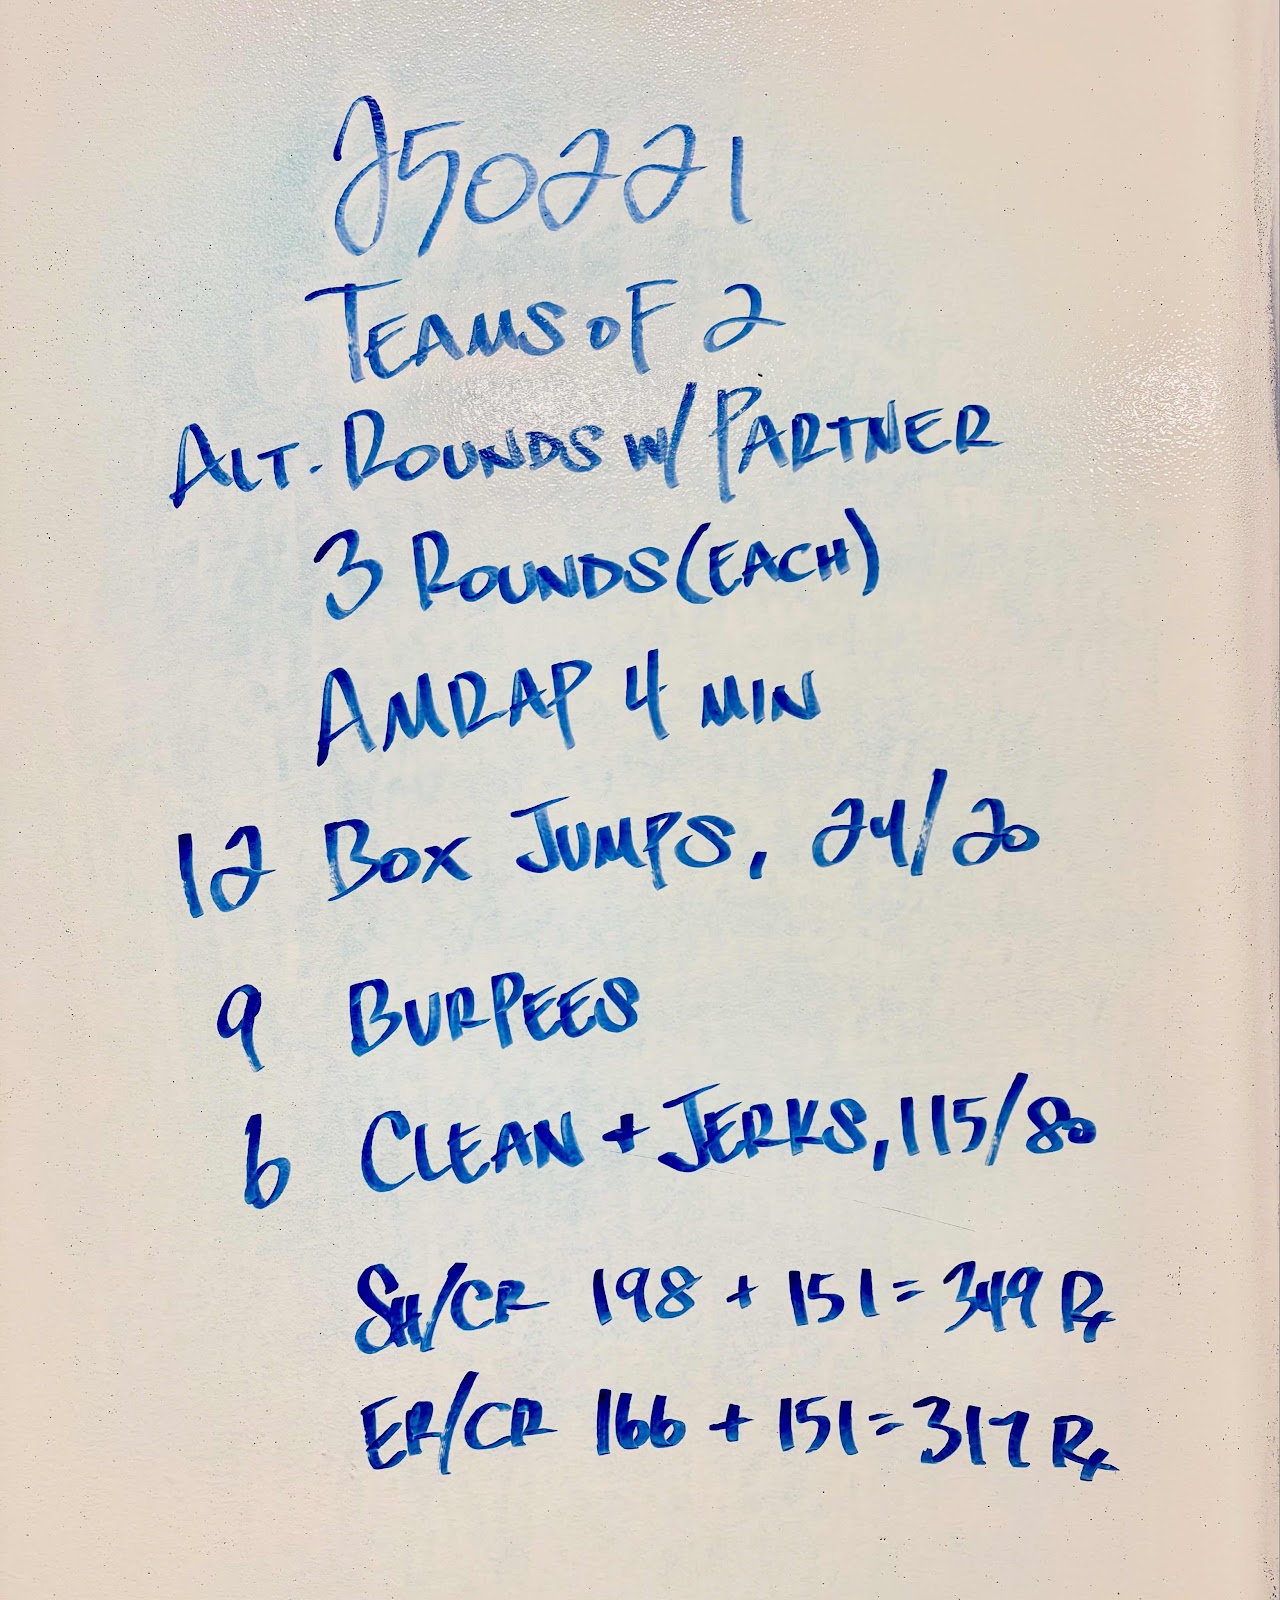 250221
TEAMS OF 2
ALT. ROUNDS W/ PARTNER
3 ROUNDS (EACH)
AMRAP 4 MIN
12 BOX JUMPS, 24/20
9 BURPEES
6 CLEAN + JERKS, 115/80
SH/CR 198 + 151 = 349 Rx
ER/CR 166 + 151 = 317 Rx